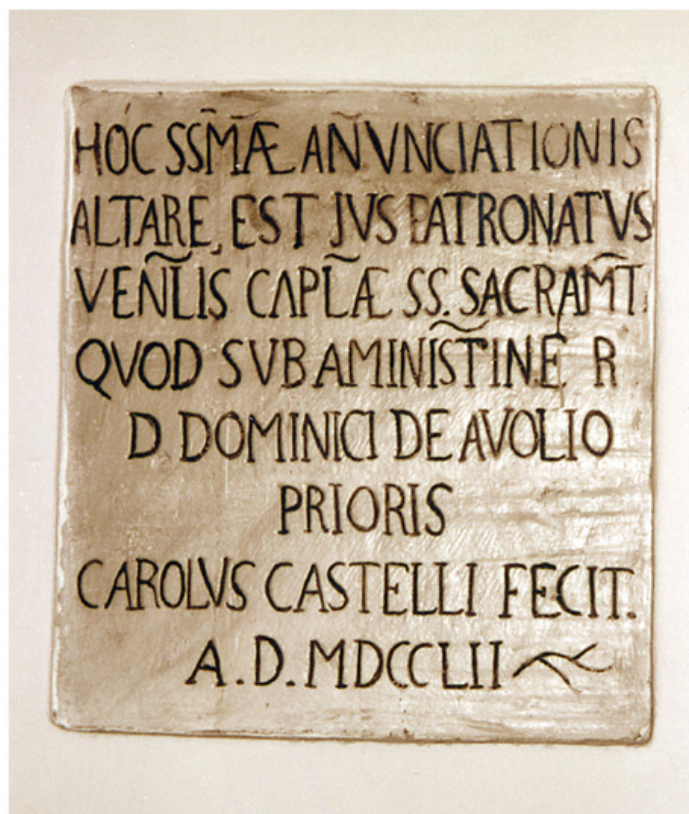 HOC SSM̃Æ AÑVNCIATIONIS
ALTARE, EST JVS PATRONATVS
VEÑLIS CAPL̃Æ SS. SACRAM̃T.
QVOD SVB AMINIST̃INE. R
D. DOMINICI DE AVOLIO
PRIORIS
CAROLVS CASTELLI FECIT.
A.D. MDCCLII